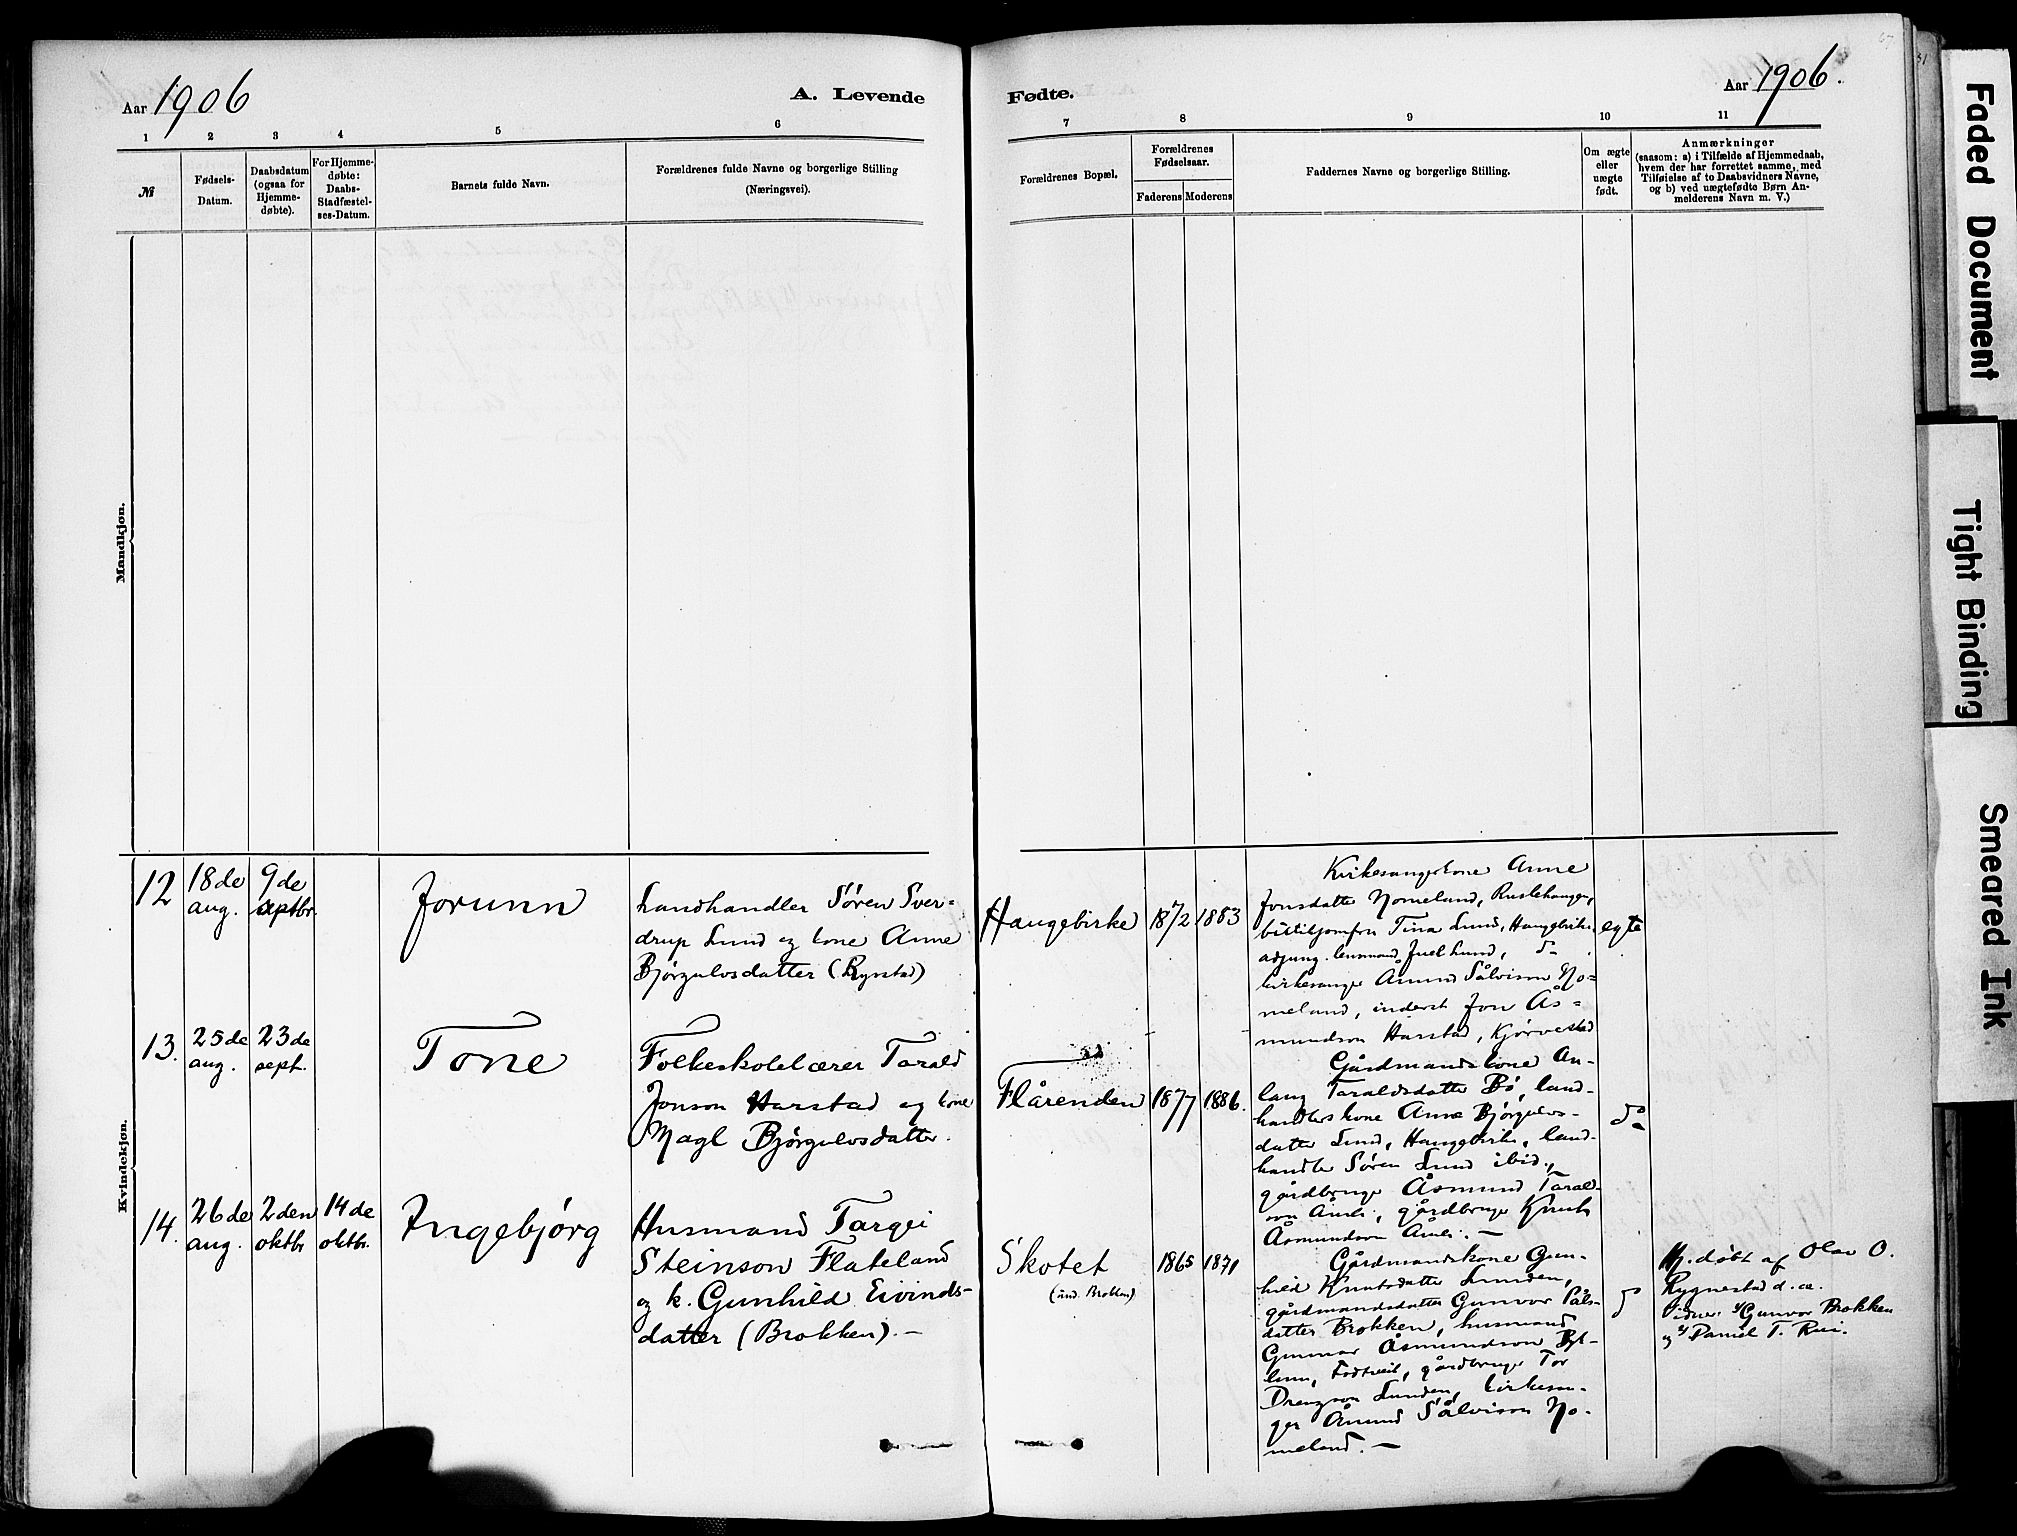 Aar 1906
A. Levende
Fødte.
Aar 1906.
1 2 3 4 5 6
7 8 9 10 11
№
Fødsels-
Datum.
Daabsdatum
(ogsaa for
Hjemme-
døbte).
For Hjemme-
døbte:
Daabs-
Stadfæstel-
ses-Datum.
Barnets fulde Navn.
Forældrenes fulde Navne og borgerlige Stilling
(Næringsvei).
Forældrenes Bopæl.
Forældrenes
Fødselsaar.
Faderens Moderens
Faddernes Navne og borgerlige Stilling.
Om ægte
eller
uægte
født.
Anmærkninger
(saasom: a) i Tilfælde af Hjemmedaab,
hvem der har forrettet samme, med
Tilføielse af to Daabsvidners Navne,
og b) ved uægtefødte Børn An-
melderens Navn m. V.)
Mandkjøn.
Kvindekjøn.
12
18de
aug.
9de
septbr.
Jorunn
Landhandler Søren Sver-
drup Lund og kone Anne
Bjørgulvsdatter (Rystad)
Haugebirke
1872
1883
Kirkesangerkone Anne
Jonsdatter Nomeland,
Tina Lund, Haugebirke,
adjung. lensmand Juel Lund, do
kirkesanger Åmund Sålvison No-
meland, inderst Jon Ås-
mundson Harstad, Kjørvestad
egte
13.
25de
aug.
23de
sept.
Tone
Folkeskolelærer Tarald
Jonson Harstad og kone
Magl Bjørgulvsdatter.
Flårenden
1877
1886.
Gårdmandskone An-
laug Taraldsdatter Bø, land-
handlerskone Anne Bjørgulvs-
datter Lund, Haugebirke, land-
handler Søren Lund ibid.,
gårdbruger Åsmund Tarald-
son Åmli, gårdbruger Knut
Åsmundson Åmli. —
do
14.
26de
aug.
2den
oktbr
14de
oktbr.
Ingebjørg
Husmand Targei
Steinson Flateland
og k. Gunhild Eivinds-
datter (Brokken). —
Skotet
(und. Brokken)
1865
1871
Gårdmandskone Gun-
hild Knutsdatter Lunden,
gårdmandsdatter Gunvor Påls-
datter Brokken, husmand
Gunnar Åsmundson Byk-
lum, Fodtveit, gårdbruger Tor
Drengson Lunden, kirkesan-
ger Åmund Sålvison No-
meland. —
do
Hj. døbt af Olav O.
Rygnestad d. æ.
Vidner: 1/ Gunvor Brokken
og 2/ Daniel T. Rui.
Faded Document
Tight Binding
Smeared Ink